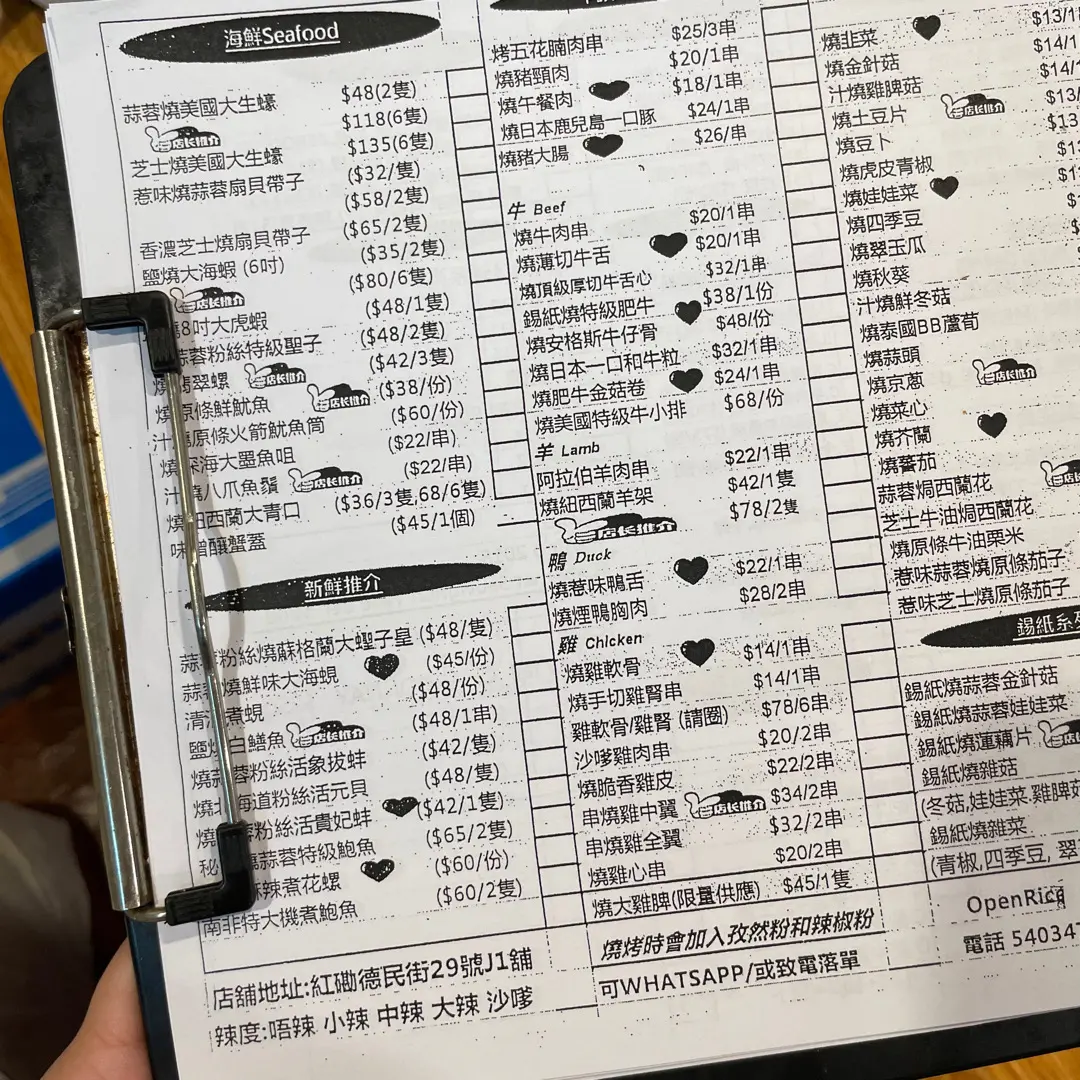 海鮮Seafood
蒜蓉燒美國大生蠔 $48(2隻)
$118(6隻)
店长推介
芝士燒美國大生蠔 $135(6隻)
惹味燒蒜蓉扇貝帶子 ($32/隻)
($58/2隻)
香濃芝士燒扇貝帶子 ($65/2隻)
鹽燒大海蝦 (6吋) ($35/2隻)
店长推介 ($80/6隻)
燒8吋大虎蝦 ($48/1隻)
蒜蓉粉絲特級聖子 ($48/2隻)
燒翡翠螺 店长推介 ($42/3隻)
燒原條鮮魷魚 店长推介 ($38/份)
汁燒原條火箭魷魚筒 ($60/份)
燒深海大墨魚咀 ($22/串)
汁燒八爪魚鬚 店长推介 ($22/串)
燒紐西蘭大青口 ($36/3隻,68/6隻)
味噌釀蟹蓋 ($45/1個)
新鮮推介
蒜蓉粉絲燒蘇格蘭大蟶子皇 ($48/隻)
蒜蓉燒鮮味大海蜆 ($45/份)
清酒煮蜆 ($48/份)
鹽燒白鱔魚 店长推介 ($48/1串)
燒蒜蓉粉絲活象拔蚌 ($42/隻)
燒北海道粉絲活元貝 ($48/隻)
燒蒜蓉粉絲活貴妃蚌 ($42/1隻)
秘 燒蒜蓉特級鮑魚 ($65/2隻)
麻辣煮花螺 ($60/份)
南非特大機煮鮑魚 ($60/2隻)
店舖地址:紅磡德民街29號J1舖
辣度:唔辣 小辣 中辣 大辣 沙嗲
烤五花腩肉串 $25/3串
燒豬頸肉 $20/1串
燒午餐肉 $18/1串
燒日本鹿兒島一口豚 $24/1串
燒豬大腸 $26/串
牛 Beef
燒牛肉串 $20/1串
燒薄切牛舌 $20/1串
燒頂級厚切牛舌心 $32/1串
錫紙燒特級肥牛 $38/1份
燒安格斯牛仔骨 $48/份
燒日本一口和牛粒 $32/1串
燒肥牛金菇卷 $24/1串
燒美國特級牛小排 $68/份
羊 Lamb
阿拉伯羊肉串 $22/1串
燒紐西蘭羊架 $42/1隻
店长推介 $78/2隻
鴨 Duck
燒惹味鴨舌 $22/1串
燒煙鴨胸肉 $28/2串
雞 Chicken
燒雞軟骨 $14/1串
燒手切雞腎串 $14/1串
雞軟骨/雞腎 (請圈) $78/6串
沙嗲雞肉串 $20/2串
燒脆香雞皮 $22/2串
串燒雞中翼 店长推介 $34/2串
串燒雞全翼 $32/2串
燒雞心串 $20/2串
燒大雞髀(限量供應) $45/1隻
燒烤時會加入孜然粉和辣椒粉
可WHATSAPP/或致電落單
燒韭菜 $13/1
燒金針菇 $14/1
汁燒雞脾菇 $14/1
燒土豆片 店长推介 $13/
燒豆卜 $13
燒虎皮青椒 $13
燒娃娃菜 $1
燒四季豆 $
燒翠玉瓜 $
燒秋葵
汁燒鮮冬菇
燒泰國BB蘆荀
燒蒜頭
燒京蔥 店长推介
燒菜心
燒芥蘭
燒蕃茄
蒜蓉焗西蘭花
芝士牛油焗西蘭花
燒原條牛油栗米
惹味蒜蓉燒原條茄子
惹味芝士燒原條茄子
錫紙系列
錫紙燒蒜蓉金針菇
錫紙燒蒜蓉娃娃菜
錫紙燒蓮藕片
錫紙燒雜菇
(冬菇,娃娃菜.雞脾菇
錫紙燒雜菜
(青椒,四季豆, 翠
OpenRice
電話 54034